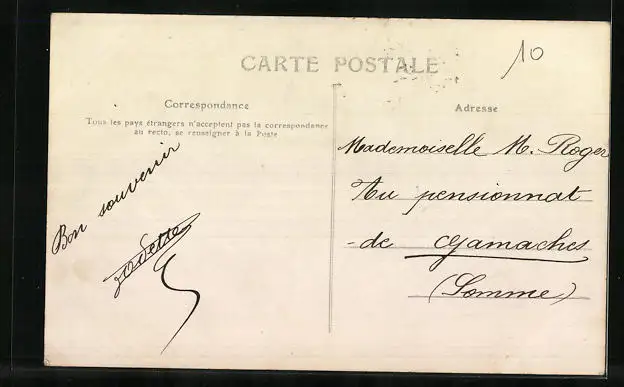 10
CARTE POSTALE
Correspondance
Tous les pays étrangers n'acceptent pas la correspondance
au recto, se renseigner à la Poste
Bon souvenir
Adresse
Mademoiselle M. Roger
Au pensionnat
de Gamaches
(Somme)